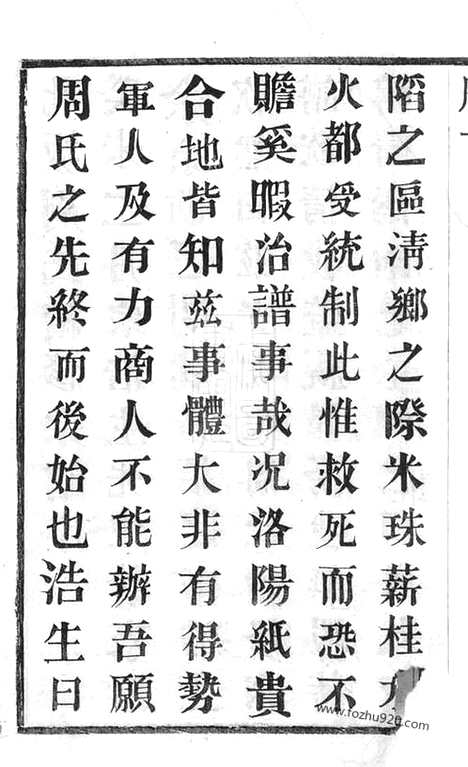 陷之區淸鄉之際米珠薪桂
火都受統制此惟救死而恐不
贍奚暇治譜事哉况洛陽紙貴
合地皆知茲事體大非有得勢
軍人及有力商人不能辦吾願
周氏之先終而後始也浩生曰
www.fozhu920.com